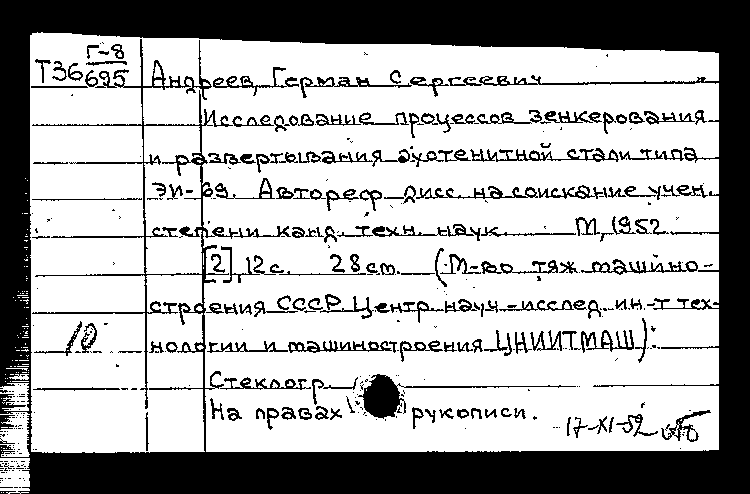 Г-8
Т36 695 Андреев, Герман Сергеевич
Исследование процессов зенкерования
и развертывания аустенитной стали типа
ЭИ-69. Автореф. дисс. на соискание учен.
степени канд. техн. наук. М, 1952
[2], 12 с. 28 см. (М-во тяж. машино-
строения СССР. Центр. науч.-исслед. ин-т тех-
10 нологии и машиностроения ЦНИИТМАШ).
Стеклогр.
На правах рукописи.
17-XI-52